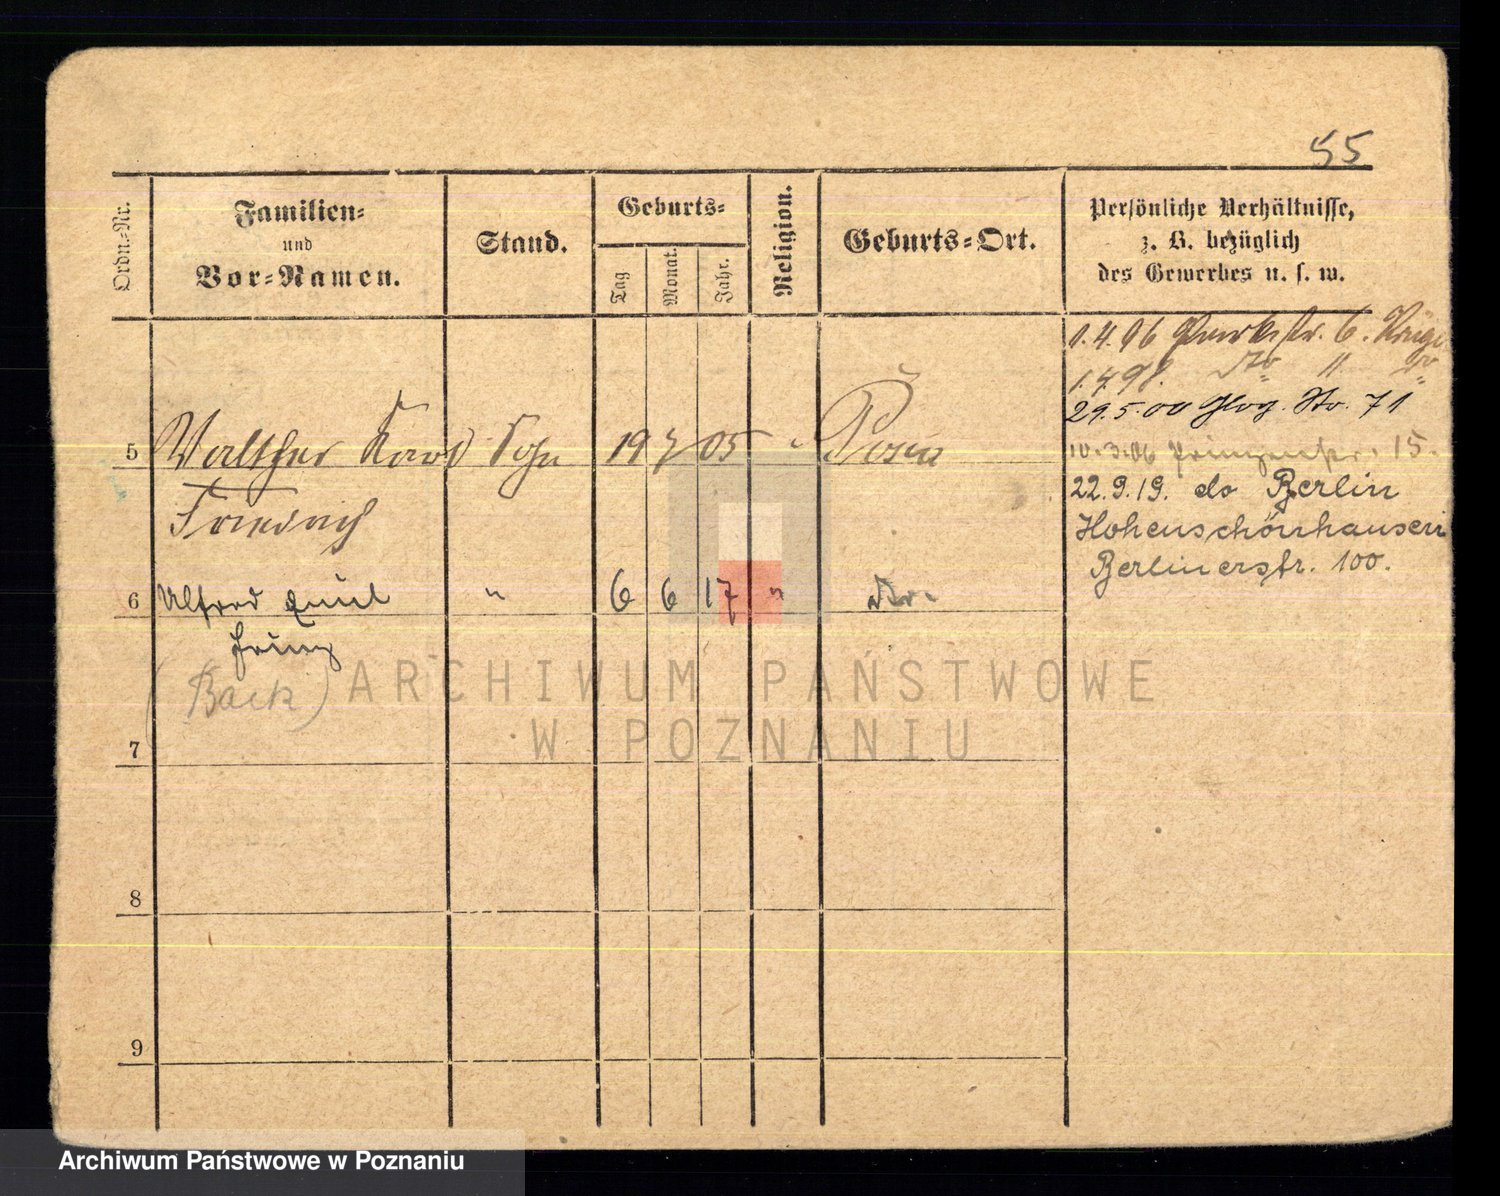 55
Ordn.-Nr.
Familien-
und
Vor-Namen.
Stand.
Geburts-
Tag
Monat.
Jahr.
Religion.
Geburts-Ort.
Persönliche Verhältnisse,
z. B. bezüglich
des Gewerbes u. s. w.
1.4.96 Parkstr. 6.
1.4.98. dto "
29.5.00 Glog. Str. 71
10.3.06 Prinzenstr. 15.
22.9.19. do Berlin
Hohenschönhausen
Berlinerstr. 100.
5 Walther Karl Sohn 19 7 05 Posen
Friedrich
6 Alfred Emil " 6 6 17 " do.
Franz
(Back)
7
8
9
ARCHIWUM PAŃSTWOWE
W POZNANIU
Archiwum Państwowe w Poznaniu